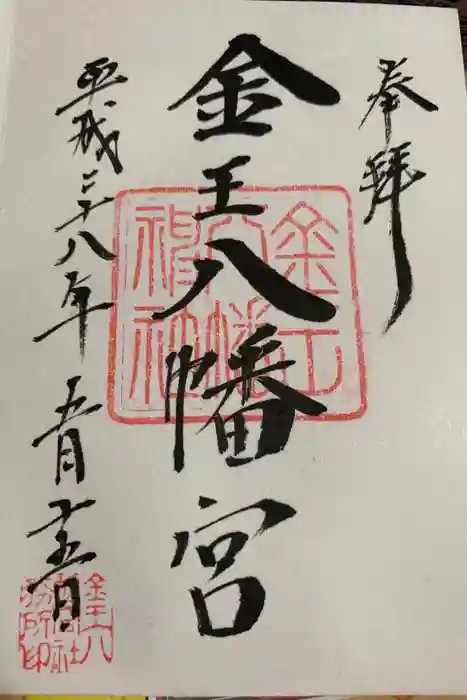 奉拝
金王八幡宮
平成二十八年 五月十五日
金王八幡神社